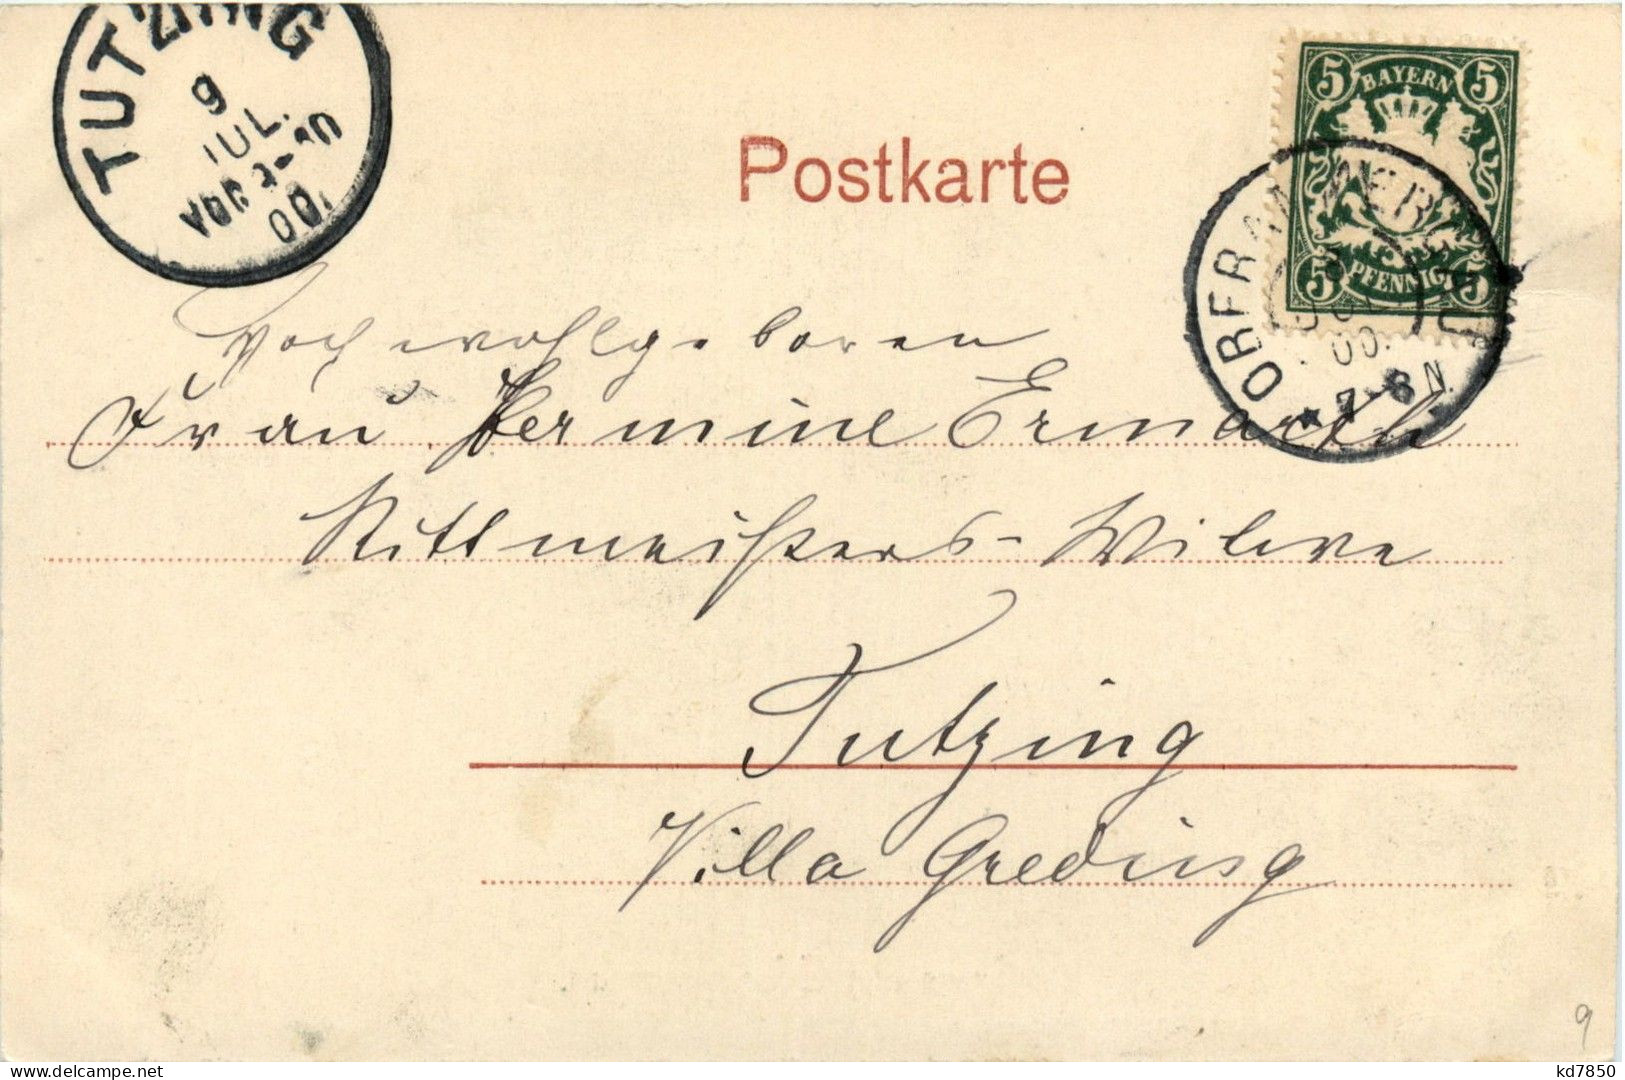 TUTZING
9
JUL.
VOR 9-10
00.
Postkarte
5 BAYERN 5
5 PFENNIG 5
OBERAMMERGAU
JUL
00.
7-8 N.
Hochwohlgeboren
Frau Hermine Ermarth
Rittmeisters-Witwe
Tutzing
Villa Greding
9
kd7850